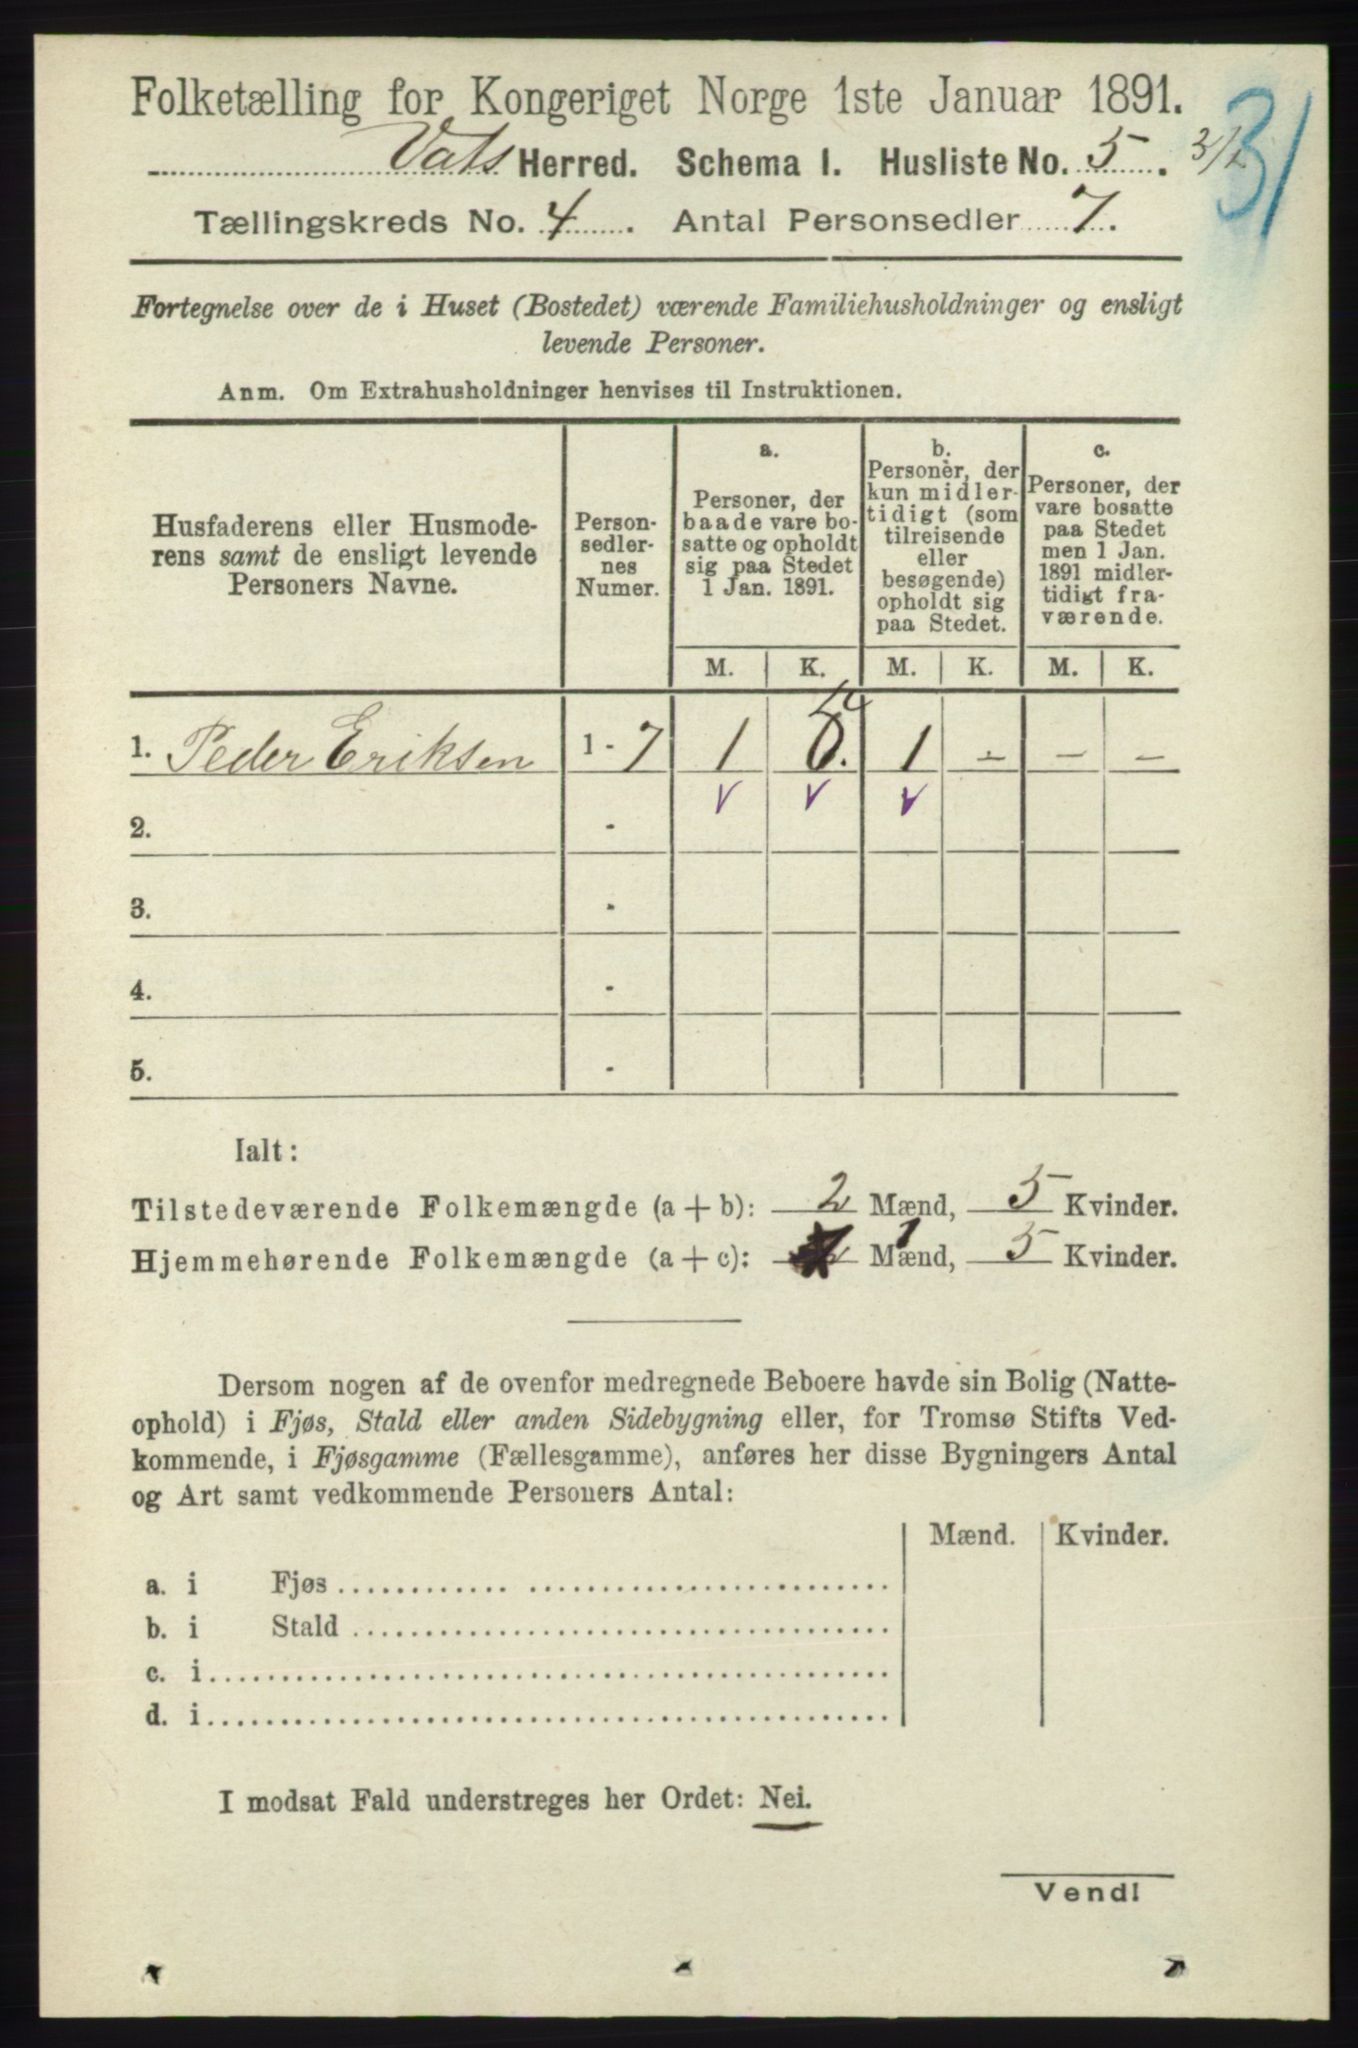 Folketælling for Kongeriget Norge 1ste Januar 1891.
31
Vats Herred. Schema I. Husliste No. 5.
Tællingskreds No. 4. Antal Personsedler 7.
Fortegnelse over de i Huset (Bostedet) værende Familiehusholdninger og ensligt
levende Personer.
Anm. Om Extrahusholdninger henvises til Instruktionen.
Husfaderens eller Husmode-
rens samt de ensligt levende
Personers Navne.
Person-
sedler-
nes
Numer.
a.
Personer, der
baade vare bo-
satte og opholdt
sig paa Stedet
1 Jan. 1891.
b.
Personer, der
kun midler-
tidigt (som
tilreisende
eller
besøgende)
opholdt sig
paa Stedet.
c.
Personer, der
vare bosatte
paa Stedet
men 1 Jan.
1891 midler-
tidigt fra-
værende.
M. K. M. K. M. K.
1. Peder Eriksen 1 - 7 1 1 - - -
2. -
3. -
4. -
5. -
Ialt:
Tilstedeværende Folkemængde (a + b): 2 Mænd, 5 Kvinder.
Hjemmehørende Folkemængde (a + c): 1 Mænd, 5 Kvinder.
Dersom nogen af de ovenfor medregnede Beboere havde sin Bolig (Natte-
ophold) i Fjøs, Stald eller anden Sidebygning eller, for Tromsø Stifts Ved-
kommende, i Fjøsgamme (Fællesgamme), anføres her disse Bygningers Antal
og Art samt vedkommende Personers Antal:
Mænd. Kvinder.
a. i Fjøs
b. i Stald
c. i
d. i
I modsat Fald understreges her Ordet: Nei.
Vend!